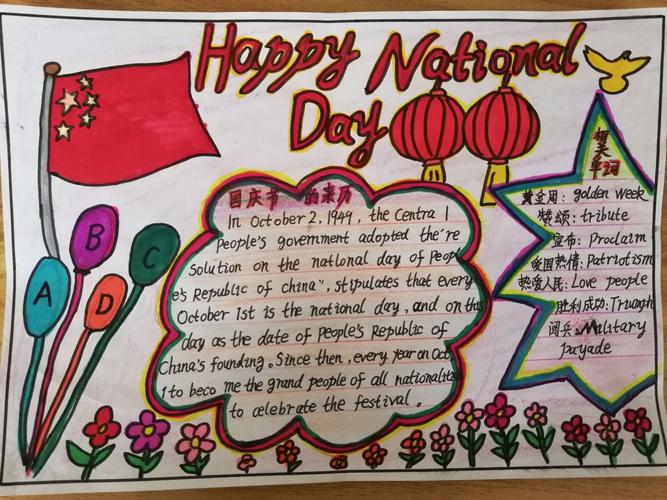 Happy National
Day
B
C
A
D
国庆节 的来历
In October 2, 1949, the Centra l
People's government adopted the"re
solution on the national day of Peopl
e's Republic of china", stipulates that every
October 1st is the national day, and on this
day as the date of People's Republic of
China's founding. Since then, every year on Oct
1 to beco me the grand people of all nationalities
to celebrate the festival.
相关单词
黄金周: golden week
赞颂: tribute
宣布: Proclaim
爱国热情: Patriotism
热爱人民: Love people
胜利成功: Triumph
阅兵: Military
Payade